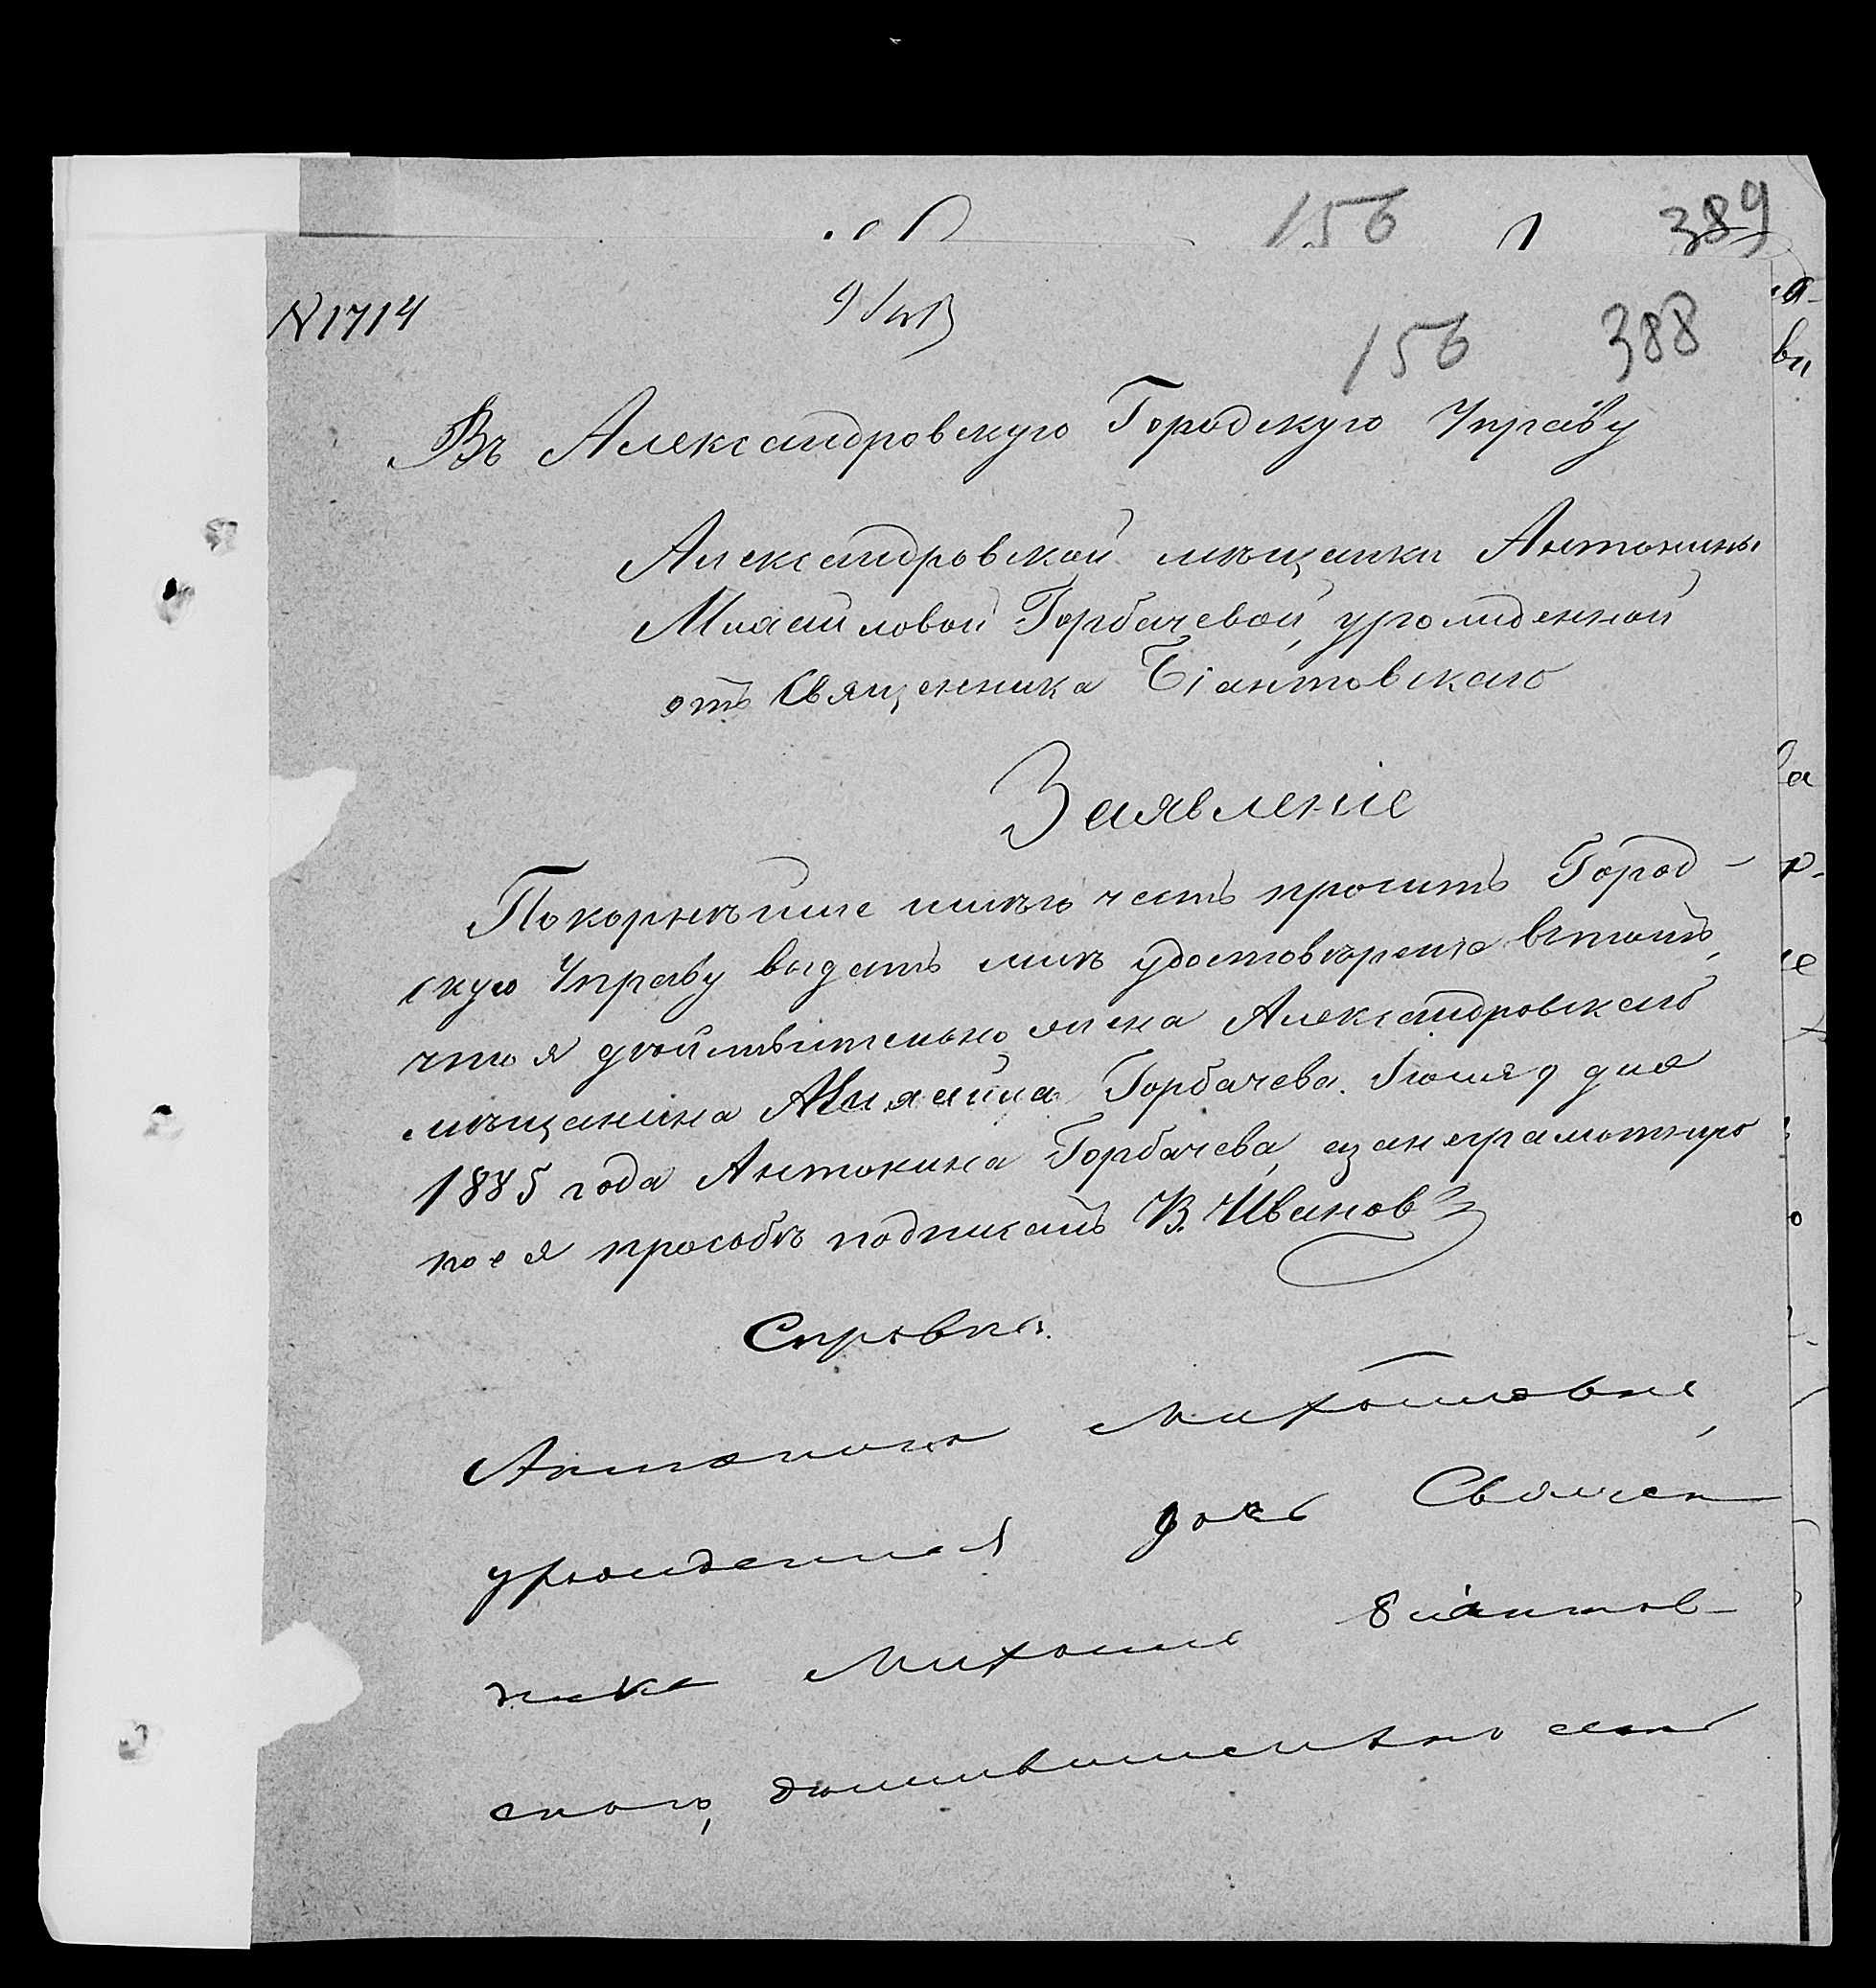 156 1 389
N 1714
156 388
Въ Александровскую Городскую Управу
Александровской мѣщанки Антонины
Михайловой Горбачевой, урожденной
отъ Священника Біантовскаго
Заявленіе
Покорнѣйше имѣю честь просить Город-
скую Управу выдать мнѣ удостовѣреніе втомъ,
что я дѣйствительно жена Александровскаго
мѣщанина Михаила Горбачева. Іюля 9 дня
1885 года Антонина Горбачева, азанеграмотную
по ея прособѣ подписалъ В. Ивановъ
Справка.
Антонина Михайловна,
урожденная дочь Священ
ника Михаила Біантов-
скаго, действительно есть